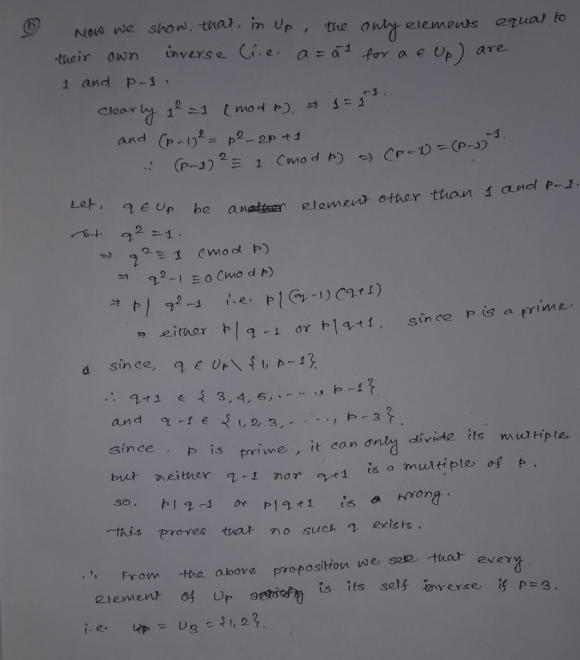 (b) Now we show, that, in Up, the only elements equal to
their own inverse (i.e. a = a⁻¹ for a ∈ Up) are
1 and p-1.
clearly 1² = 1 (mod p) ⇒ 1 = 1⁻¹.
and (p-1)² = p² - 2p + 1
∴ (p-1)² ≡ 1 (mod p) ⇒ (p-1) = (p-1)⁻¹.
Let, q ∈ Up be an element other than 1 and p-1.
s.t. q² = 1.
⇒ q² ≡ 1 (mod p)
⇒ q² - 1 ≡ 0 (mod p)
⇒ p | q² - 1 i.e. p | (q-1)(q+1)
⇒ either p | q-1 or p | q+1, since p is a prime.
since, q ∈ Up \ {1, p-1},
∴ q+1 ∈ {3, 4, 5, ....., p-1},
and q-1 ∈ {1, 2, 3, ....., p-3}.
since, p is prime, it can only divide its multiple
but neither q-1 nor q+1 is a multiple of p.
so. p | q-1 or p | q+1 is wrong.
This proves that no such q exists.
∴ From the above proposition we see that every
element of Up is its self inverse if p=3.
i.e. Up = U3 = {1, 2}.